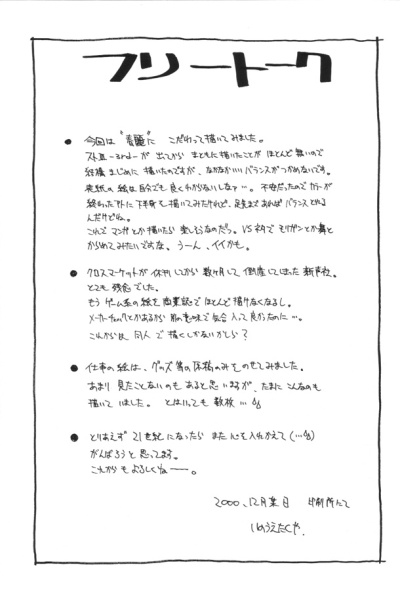 フリートーク
● 今回は"春麗"に こだわって描いてみました。
ストIII -3rd- が 出てから まともに描いたことが ほとんど無いので
結構まじめに 描いたのですが、なかなかいいバランスがつかめないです。
表紙の絵は自分でも良くわからないしなァ…。不安だったのでカラーが
終わった外に下半身も描いてみたけれど、足まであればバランスとれる
んだけどね。
これで マンガとか描いたら 楽しそうなのだっ。VSネタで モリガンとか舞と
からめてみたいですな。うーん、イイかも。
● クロスマーケットが 休刊してから 数ヶ月して 倒産してしまった 新声社。
とても 残念でした。
もう ゲーム系の絵を 商業誌で ほとんど 描けなくなるし。
メーカーチェックとかあるから 別の意味で 気合 入って 良かったのに…。
これからは 同人 で 描くしかないかしら?
● 仕事の絵は、グッズ等の原稿のみをのせてみました。
あまり 見たことないのも あると思いますが、たまに こんなのも
描いて いました。 とはいっても 数枚…
● とりあえず 21世紀になったら また 心を入れかえて(…)
がんばろうと思ってます。
これからも よろしくねー。
2000、12月某日 印刷所にて
いのうえたくや.